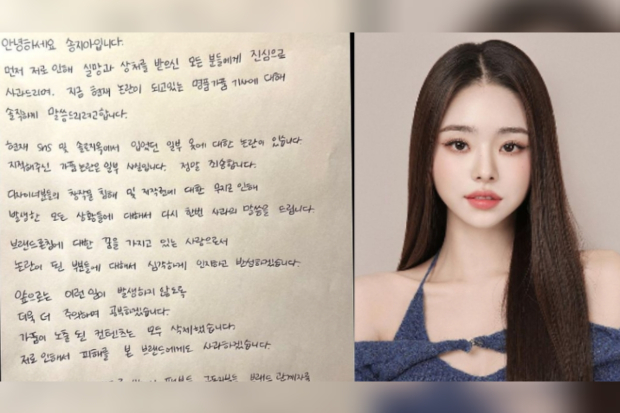 안녕하세요 송지아입니다.
먼저 저로 인해 실망과 상처를 받으신 모든 분들에게 진심으로
사과드리며, 지금 현재 논란이 되고있는 명품가품 기사에 대해
솔직하게 말씀드리려고합니다.
현재 SNS 및 솔로지옥에서 입었던 일부 옷에 대한 논란이 있습니다
지적해주신 가품논란은 일부 사실입니다. 정말 죄송합니다.
디자이너분들의 창작물 침해 및 저작권에 대한 무지로 인해
발생한 모든 상황들에 대해서 다시 한번 사과의 말씀을 드립니다.
브랜드론칭에 대한 꿈을 가지고 있는 사람으로서
논란이 된 부분들에 대해서 심각하게 인지하고 반성하겠습니다.
앞으로는 이런일이 발생하지 않도록
더욱 더 주의하며 공부하겠습니다.
가품이 노출 된 컨텐츠는 모두 삭제했습니다.
저로 인해서 피해를 본 브랜드에게도 사과하겠습니다.
브랜드 관계자분